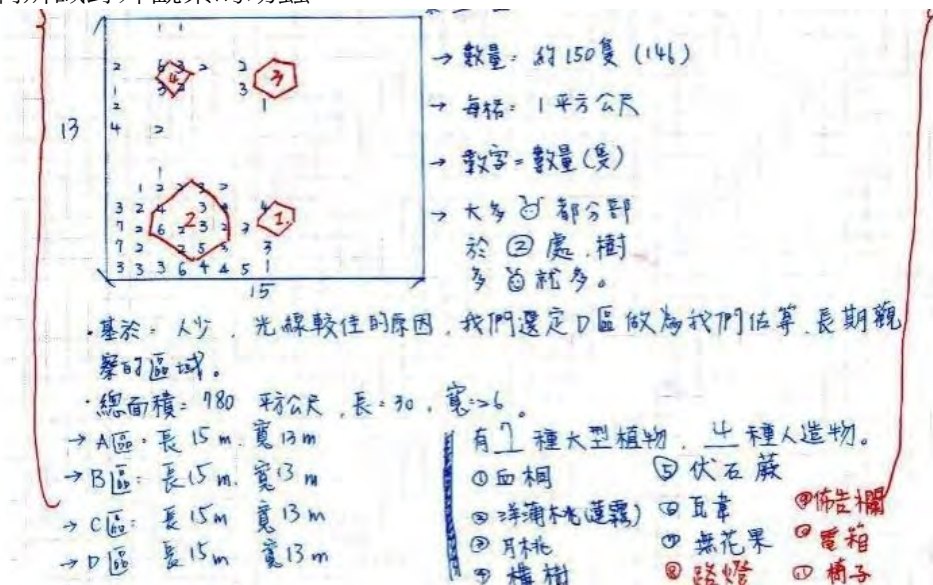 1 1
2 6 3 2 2
④ ③
1 3 2 3
2 1
4 2
13
1
1 2 2 3 2
3 2 4 3 4
7 2 6 2 3 2 2
2 1.
7 2 2 5 3 3
3 3 3 6 4 4 5 1
15
→ 數量: 約150隻 (146)
→ 每格: 1平方公尺
→ 數字=數量(隻)
→ 大多 都分部
於 ② 處,樹
多 就多。
·基於:人少,光線較佳的原因,我們選定D區做為我們估算、長期觀
察的區域。
·總面積: 780 平方公尺,長:30,寬:26。
→ A區: 長15m. 寬13m
→ B區: 長15m. 寬13m
→ C區: 長15m 寬13m
→ D區 長15m 寬13m
有 7 種大型植物, 4 種人造物。
①血桐 ⑤伏石蕨
②洋蒲桃(蓮霧) ⑥瓦韋 佈告欄
③月桃 ⑦無花果 電箱
樹 ⑧路燈 椅子